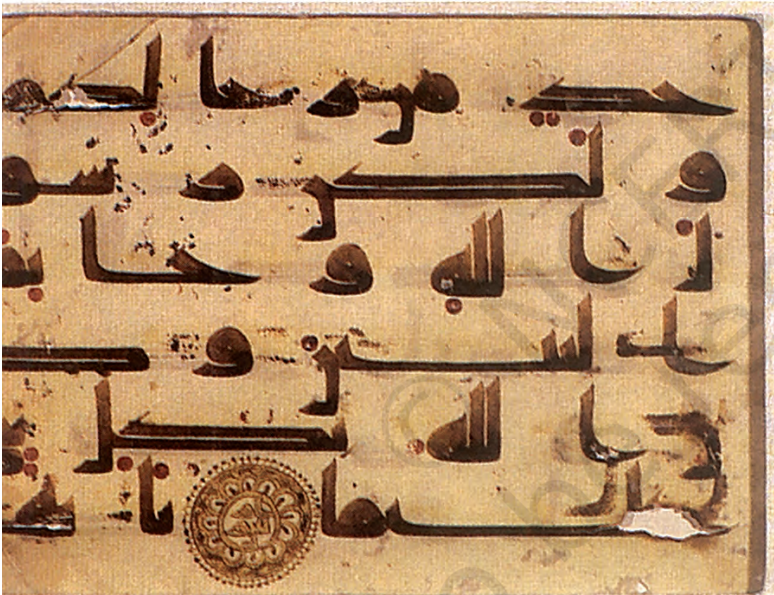 حد من رجالكم
ولكن رسو
ل الله وخاتم
النبين وكا
ن الله بكل شى
عليما يايها